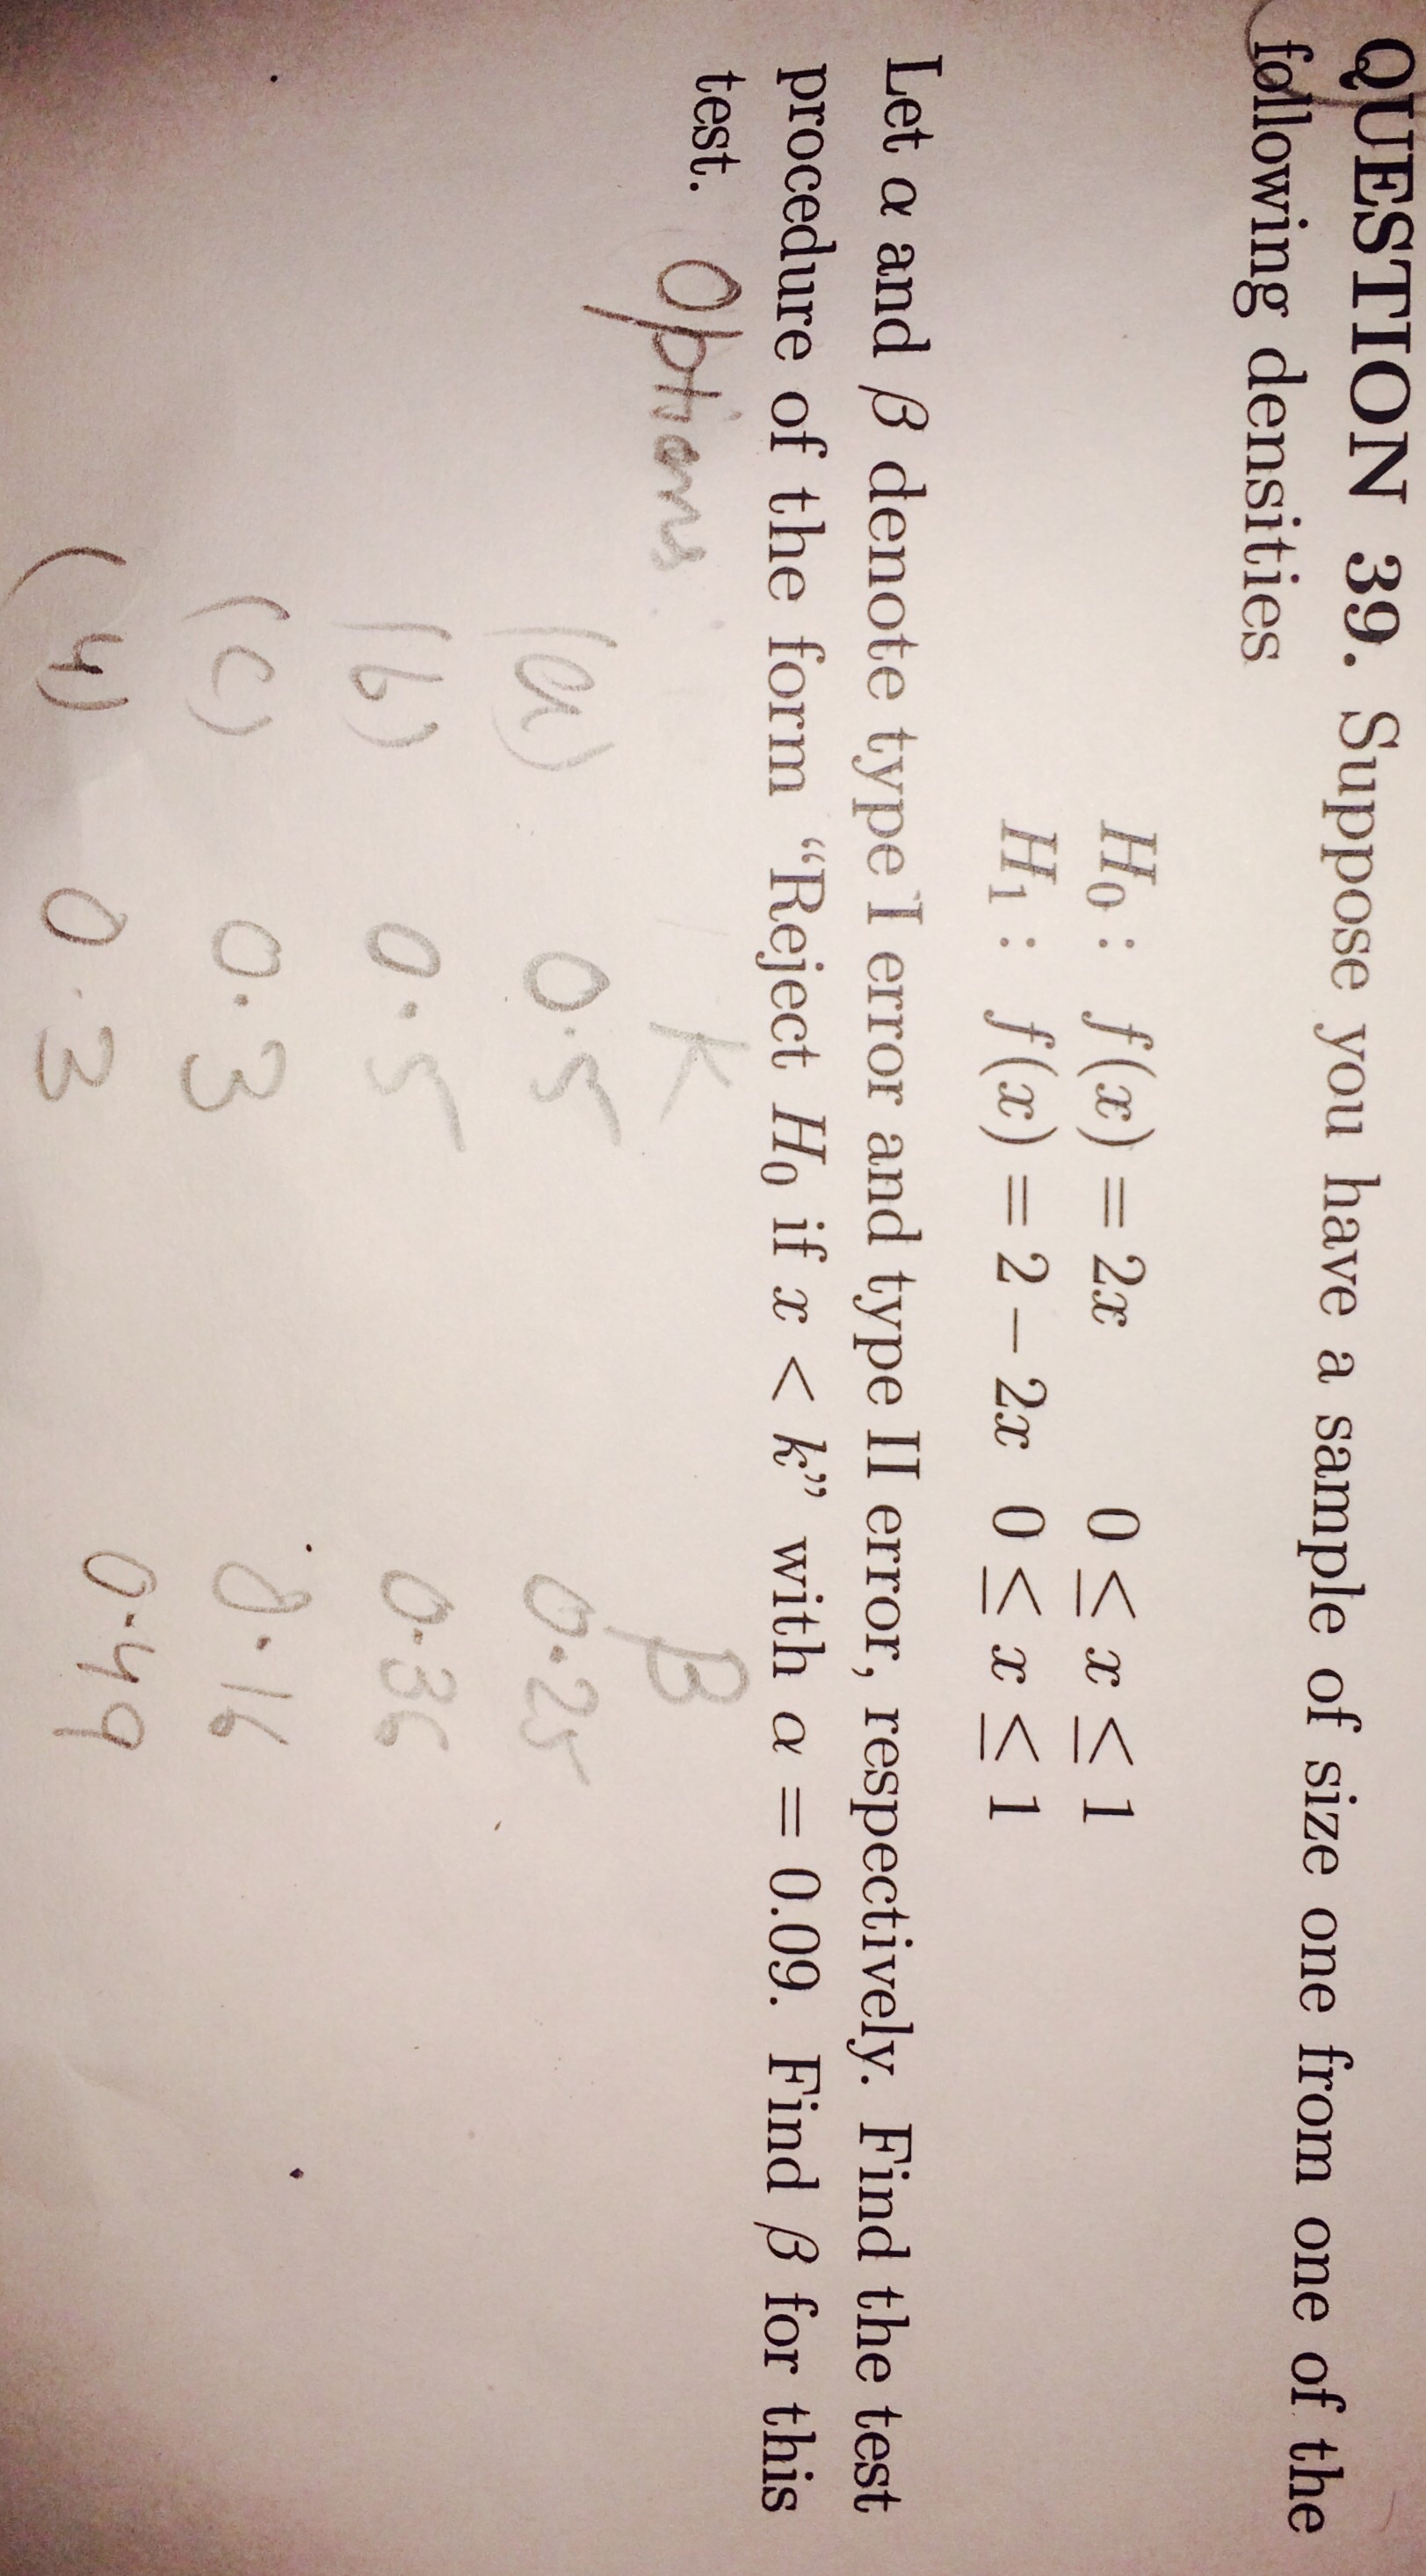 QUESTION 39. Suppose you have a sample of size one from one of the
following densities
H₀ : f(x) = 2x 0 ≤ x ≤ 1
H₁ : f(x) = 2 − 2x 0 ≤ x ≤ 1
Let α and β denote type I error and type II error, respectively. Find the test
procedure of the form “Reject H₀ if x < k” with α = 0.09. Find β for this
test.
Options K β
(a) 0.5 0.25
(b) 0.5 0.36
(c) 0.3 0.16
(4) 0.3 0.49